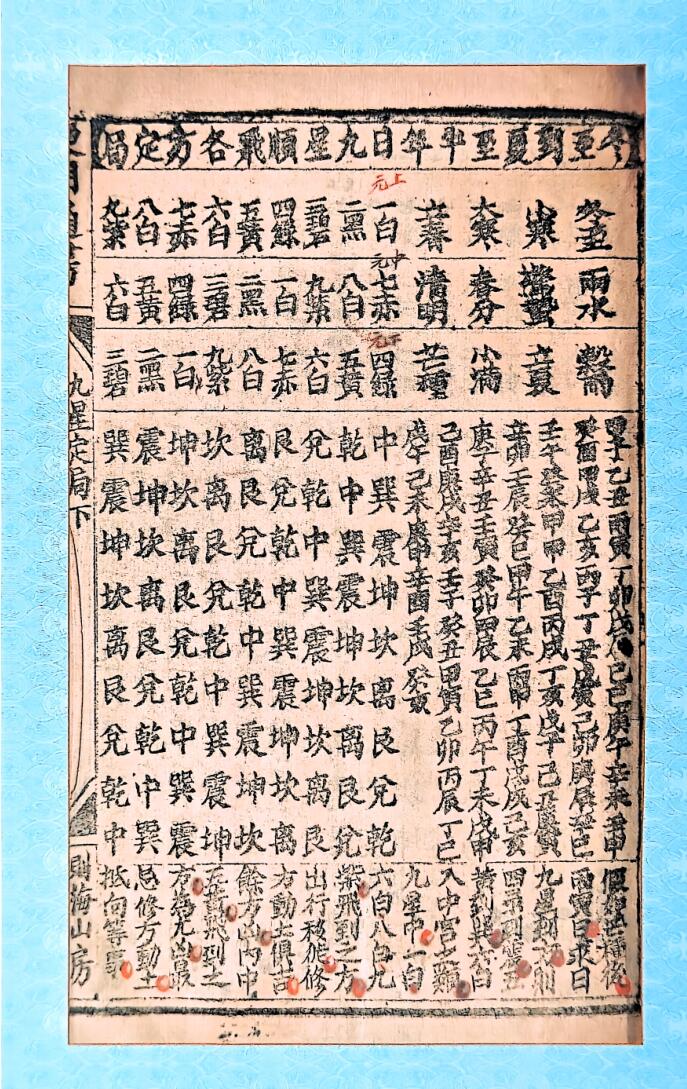 冬至到夏至半年日九星順飛各方定局
上元
冬至
小寒
大寒
立春
一白
二黑
三碧
四綠
五黃
六白
七赤
八白
九紫
中元
雨水
驚蟄
春分
清明
七赤
八白
九紫
一白
二黑
三碧
四綠
五黃
六白
下元
穀雨
立夏
小滿
芒種
四綠
五黃
六白
七赤
八白
九紫
一白
二黑
三碧
甲子乙丑丙寅丁卯戊辰己巳庚午辛未壬申
癸酉甲戌乙亥丙子丁丑戊寅己卯庚辰辛巳
壬午癸未甲申乙酉丙戌丁亥戊子己丑庚寅
辛卯壬辰癸巳甲午乙未丙申丁酉戊戌己亥
庚子辛丑壬寅癸卯甲辰乙巳丙午丁未戊申
己酉庚戌辛亥壬子癸丑甲寅乙卯丙辰丁巳
戊午己未庚申辛酉壬戌癸亥
中巽震坤坎离艮兌乾
乾中巽震坤坎离艮兌
兌乾中巽震坤坎离艮
艮兌乾中巽震坤坎离
离艮兌乾中巽震坤坎
坎离艮兌乾中巽震坤
坤坎离艮兌乾中巽震
震坤坎离艮兌乾中巽
巽震坤坎离艮兌乾中
假如芒種後
丙寅日求日
九星到方則
四
黃到巽六白
入中宮之類
九星中一白
六白八白九
紫飛到之方
出行移徙修
方動土俱吉
餘方凶內中
五黃飛到之
方為尤凶最
忌修方動土
抵向等事
九星定局下
則海山房